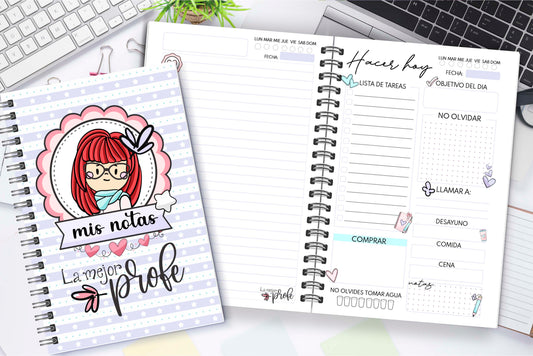 mis notas
La mejor
profe
LUN MAR MIE JUE VIE SAB DOM
FECHA:
La mejor
profe
Hacer hoy
LUN MAR MIE JUE VIE SAB DOM
FECHA:
LISTA DE TAREAS
OBJETIVO DEL DIA
NO OLVIDAR
LLAMAR A:
DESAYUNO
COMIDA
CENA
COMPRAR
notas
NO OLVIDES TOMAR AGUA